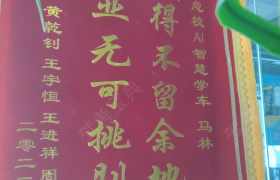 总校AI智慧学车 马林
得不留余地
业无可挑剔
黄乾钊 王宇恒 王进祥 周
二零二